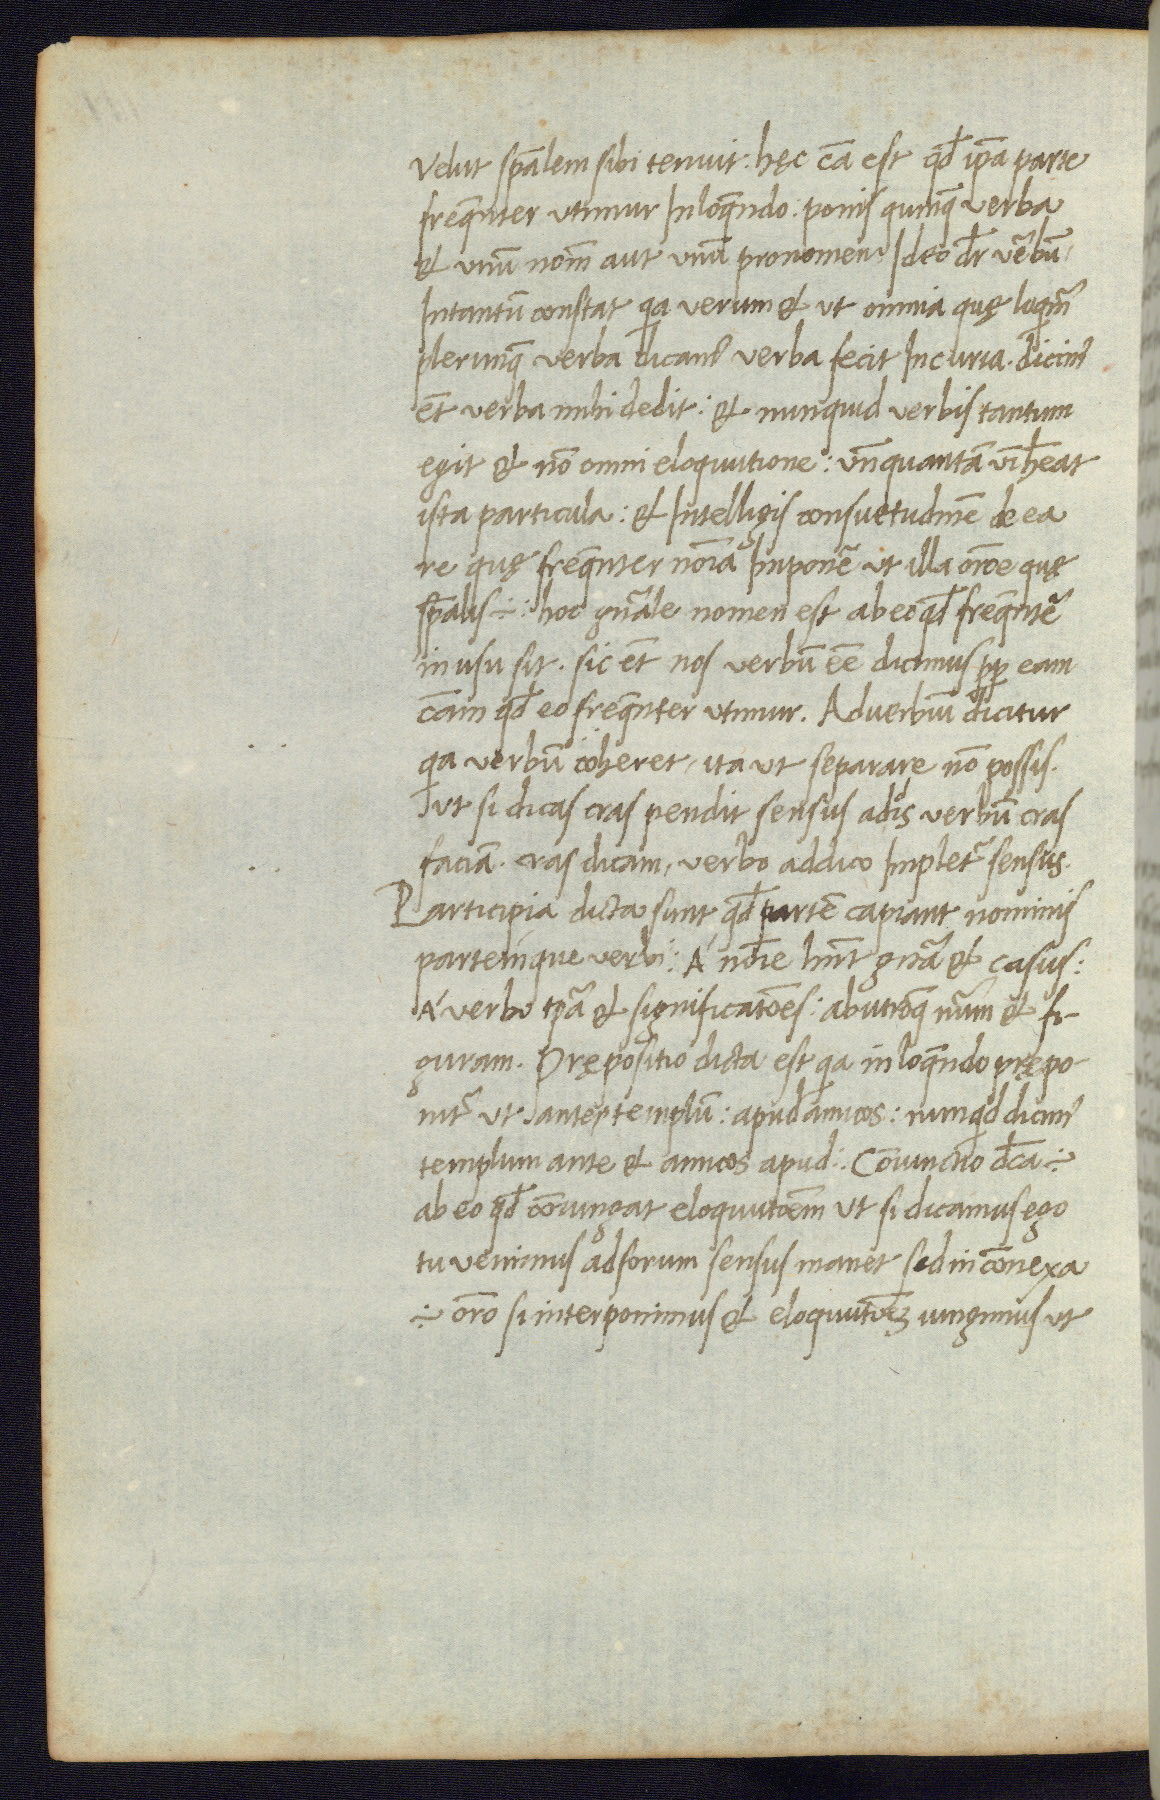 Velut sp̄alem sibi tenuit: hęc cā est qd̄ ip̄a parte
freq̄nter utimur In loq̄ndo: ponis qumq̄ verba
& unū nom̄ aut unū pronomen Ideo dr̄ verbū
Intantū constat qa verum & ut omnia quę loqm̄r
plerunq̄ verba dicant᷑ verba fecit Incuria. dicim᷑
et̄ verba mihi dedit: & nunquid verbis tantum
egit & nō omni eloquutione: un̄ quantā vī heat̄
ista particula: & Intelligis consuetudinē de ea
re quę freq̄nter noīa Imponē ut illa orōe quę
sp̄alis ÷: hoc gn̄ale nomen est ab eo qd̄ freq̄ntē
in usu sit. sic et̄ nos verbū eē dicimus pp̄ eam
cām qd̄ eo freq̄nter utimur. Aduerbiū dicitur
qa verbū coheret, ita ut separare nō possis.
ut si dicas cras pendit sensus adis verbū cras
faciā. cras dicam, verbo addico Implet᷑ sensus.
Participia dicta sunt qd̄ partē capiant nominis
partemque verbi: A' noīe hn̄t gn̄a & casus:
A' verbo tp̄a & significatōes: ab utroq̄ nūm & fi-
guram. Prępositio dicta est qa in loq̄ndo prępo
nit᷑ ut ante templū: apud amicos: nunqd dicim᷑
templum ante & amicos apud: Coniunctio dc̄a ÷
ab eo qd̄ coniungat eloquutōem ut si dicamus ego
tu venimus ad forum sensus manet sed inconexa
÷ orō si interponimus & eloquutōeȝ iungimus ut